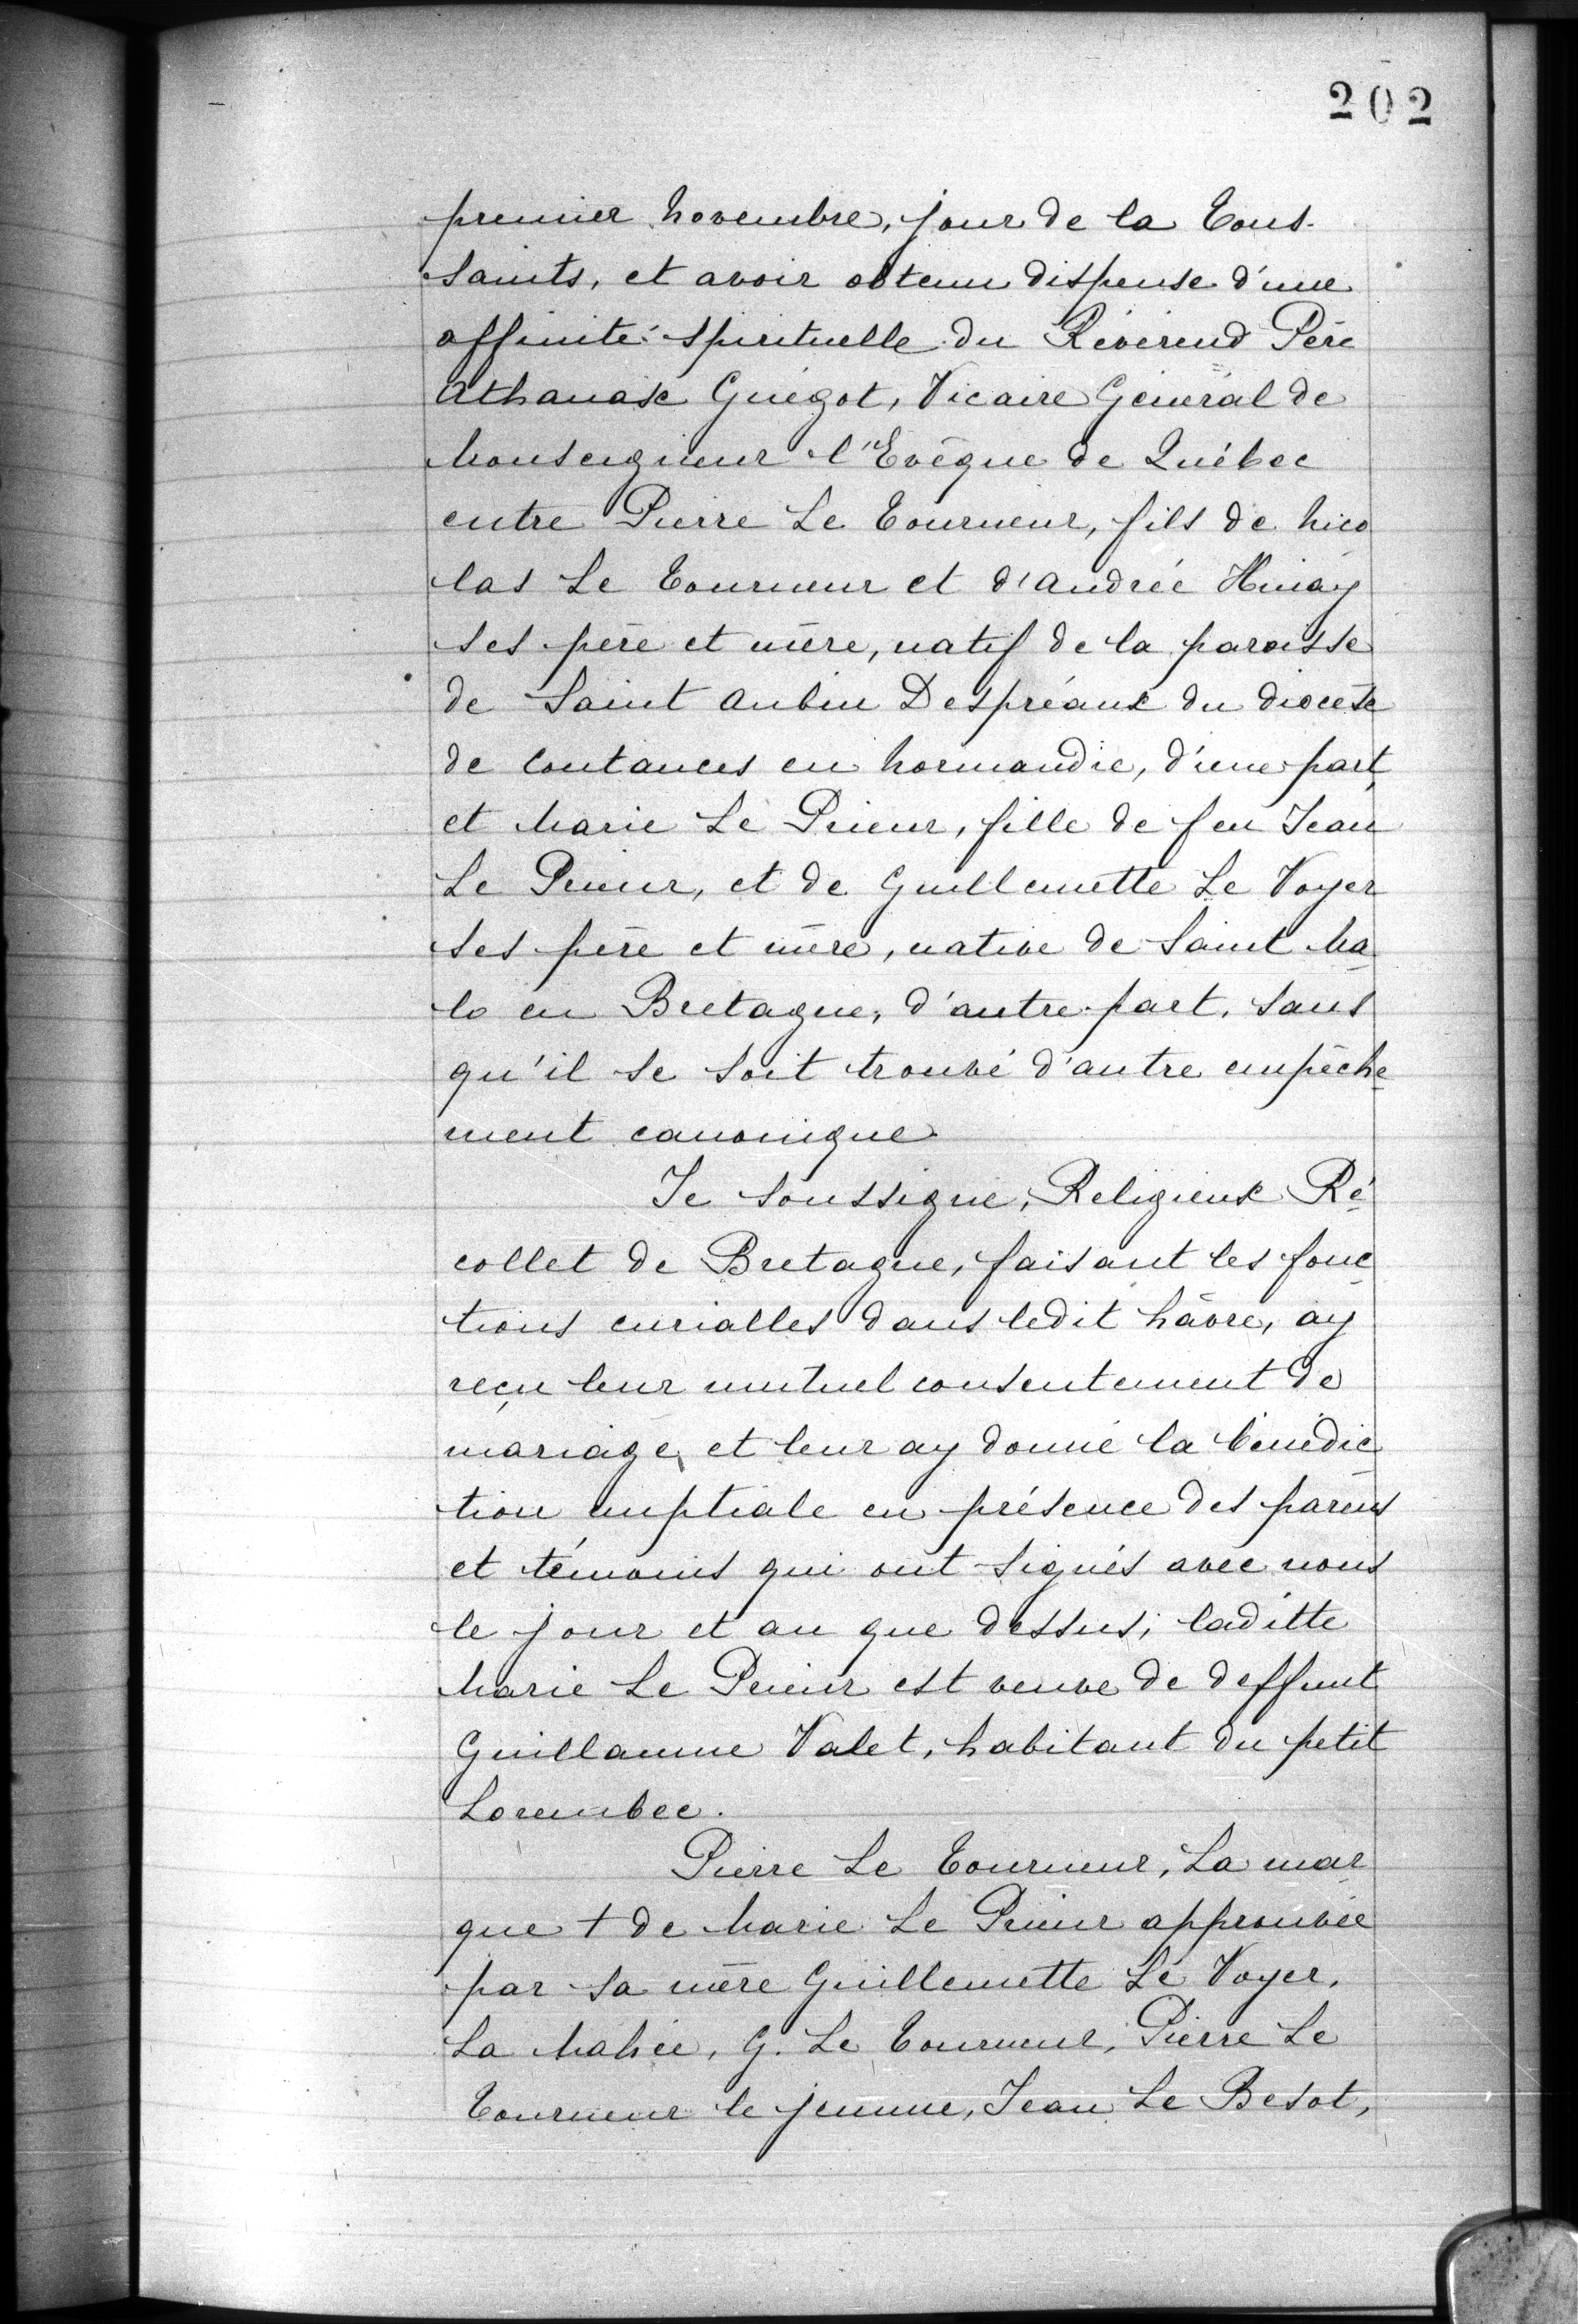 202
premier Novembre, jour de la Tous-
saints, et avoir obtenu dispense d'une
affinité spirituelle du Révérend Père
Athanase Guégot, Vicaire Général de
Monseigneur l'Evêque de Québec
entre Pierre Le Tourneur, fils de Nico
las Le Tourneur et d'Andrée
ses père et mère, natif de la paroisse
de Saint Aubin Despréaux du diocèse
de Coutances en Normandie, d'une part,
et Marie Le Prieur, fille de feu Jean
Le Prieur, et de Guillemette Le Voyer
ses père et mère, native de Saint Ma
lo en Bretagne, d'autre part, sans
qu'il se soit trouvé d'autre empêche
ment canonique
Je soussigné, Religieux Ré
collet de Bretagne, faisant les fonc
tions curialles dans ledit hâvre, ay
reçu leur mutuel consentement de
mariage, et leur ay donné la bénédic
tion nuptiale en présence des parens
et témoins qui ont signés avec nous
le jour et an que dessus; laditte
Marie Le Prieur est veuve de deffunt
Guillaume Valet, habitant du petit
Lorembec.
Pierre Le Tourneur, La mar
que + de Marie Le Prieur approuvée
par sa mère Guillemette Le Voyer,
La Mahée, G. Le Tourneur, Pierre Le
Tourneur le jeunne, Jean Le Besot,